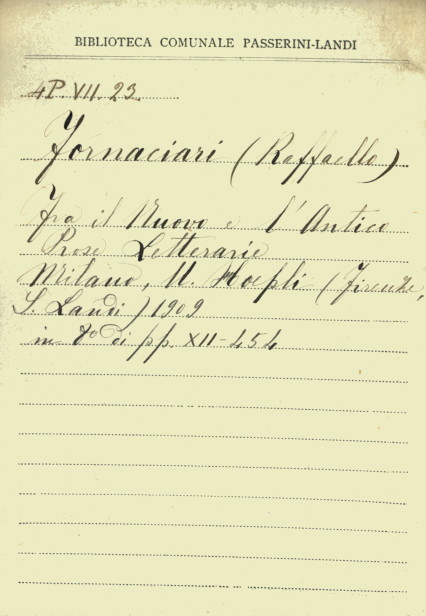 BIBLIOTECA COMUNALE PASSERINI-LANDI
4P. VII. 23.
Fornaciari (Raffaello)
Fra il Nuovo e l'Antico
Prose Letterarie
Milano, U. Hoepli (Firenze,
S. Landi) 1909
in 8º di pp. XII-454